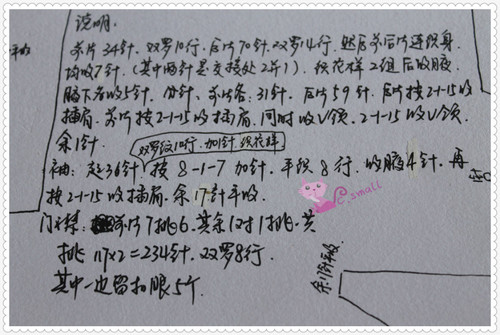 说明:
前片34针.双罗10行.后片70针.双罗14行.然后前后片连织身.
均收7针.(其中两针是交接处2并1).织花样2组后收腋.
腋下各收5针.分针、前片各:31针.后片59针.后片按2-1-15收
插肩.前片按2-1-15收插肩.同时收V领.2-1-15收V领.
余1针.
双罗纹10行.加1针.织花样
袖:起36针 按8-1-7加针.平织8行.收腋4针.再
按2-1-15收插肩.余17针平收.
门襟:前片7挑6.其余1对1挑.共
挑117×2=234针.双罗8行.
其中一边留扣眼5个.
e.small